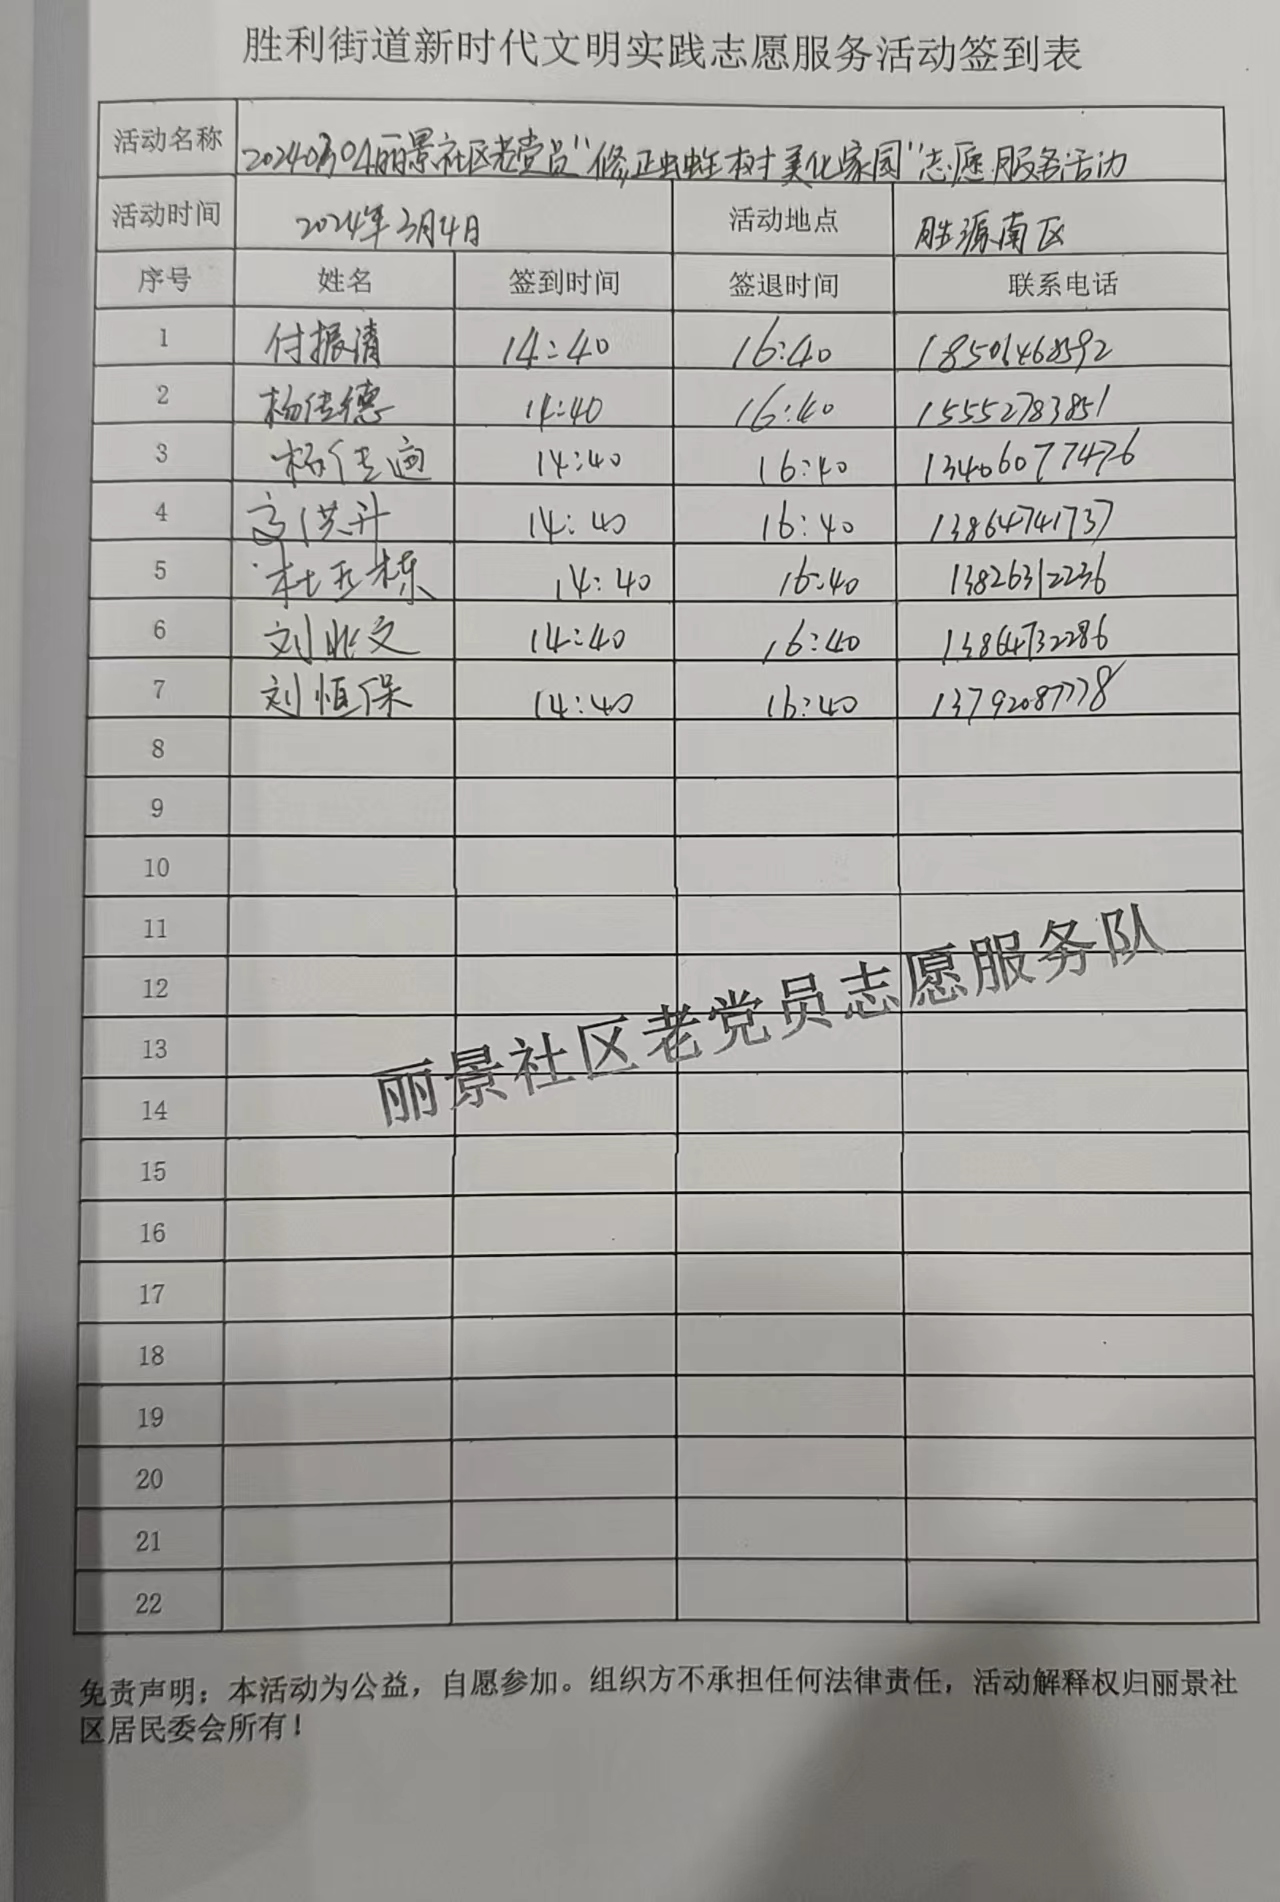 胜利街道新时代文明实践志愿服务活动签到表
活动名称 20240304丽景社区老党员“修正虫蛀树 美化家园”志愿服务活动
活动时间 2024年3月4日 活动地点 胜源南区
序号 姓名 签到时间 签退时间 联系电话
1 付振清 14:40 16:40 18506468592
2 杨传德 14:40 16:40 15552783851
3 杨传迪 14:40 16:40 13406077476
4 高洪升 14:40 16:40 13864741737
5 杜玉栋 14:40 16:40 13826312236
6 刘兆文 14:40 16:40 13864732286
7 刘恒保 14:40 16:40 13792087778
8
9
10
11
12
13
14
丽景社区老党员志愿服务队
15
16
17
18
19
20
21
22
免责声明：本活动为公益，自愿参加。组织方不承担任何法律责任，活动解释权归丽景社
区居民委会所有！